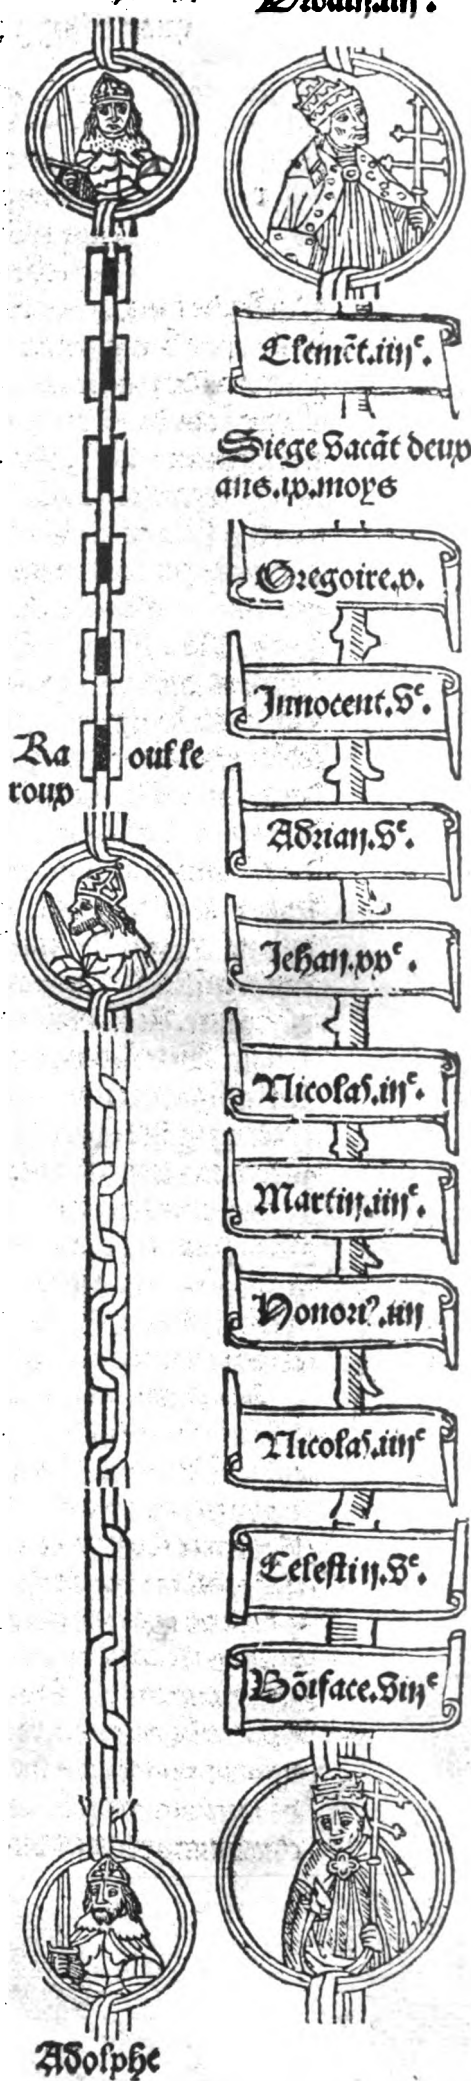 Clemēt.iiijᵉ.
Siege vacāt deux
ans.ix.moys
Gregoire.x.
Innocent.vᵉ.
Ra oul le
roux
Adrian.vᵉ.
Jehan.xxᵉ.
Nicolas.iijᵉ.
Martin.iiijᵉ.
Honoriꝰ.iiij
Nicolas.iiijᵉ
Celestin.vᵉ.
Bōiface.viijᵉ
Adolphe